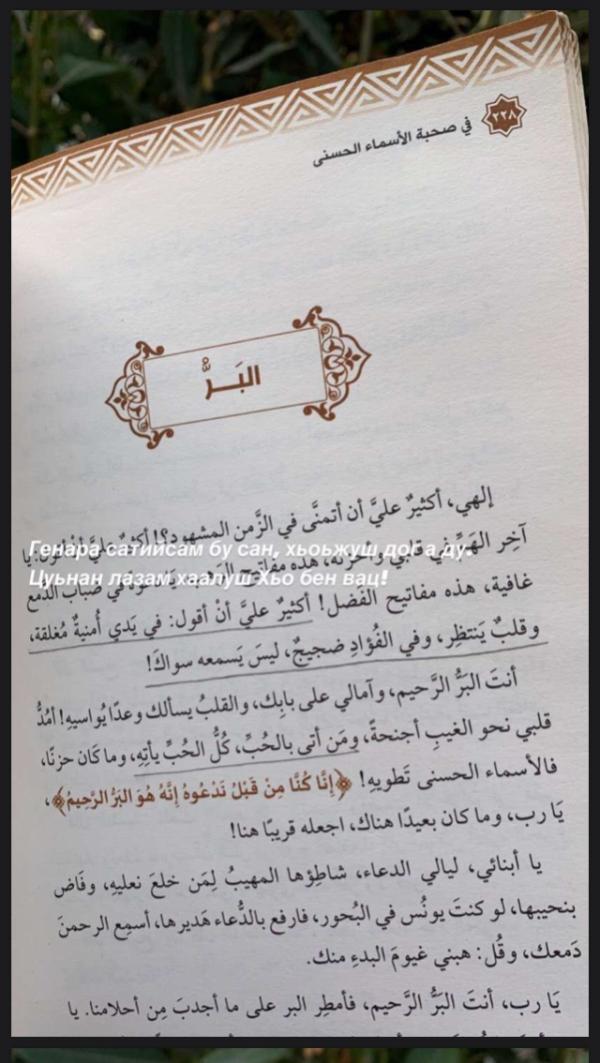 ٢٢٨
في صحبة الأسماء الحسنى
البَرُّ
إلهي، أكثيرٌ عليَّ أن أتمنَّى في الزَّمن المشهود؟! أكثيرٌ عليَّ أنْ أقول: يا
آخِر الهَمِّ في قلبي وآخره، هذه مفاتيح
Генара сатийсам бу сан, хьоьжуш дог а ду.
Цуьнан лазам хаалуш Хьо бен вац!
في ضباب الدَّمع
غافية، هذه مفاتيح الفَضل! أكثيرٌ عليَّ أنْ أقول: في يَدي أُمنيةٌ مُغلقة،
وقلبٌ يَنتظِر، وفي الفُؤادِ ضجيجٌ، ليسَ يَسمعه سواكَ!
أنتَ البَرُّ الرَّحيم، وآمالي على بابِك، والقلبُ يسألك وعدًا يُواسيهِ! أمُدُّ
قلبي نحو الغيبِ أجنحةً، ومَن أتى بالحُبِّ، كُلُّ الحُبِّ يأتِهِ، وما كَان حزنًا،
فالأسماء الحسنى تَطويهِ! ﴿إِنَّا كُنَّا مِنْ قَبْلُ نَدْعُوهُ إِنَّهُ هُوَ البَرُّ الرَّحِيمُ﴾،
يَا رب، وما كان بعيدًا هناك، اجعله قريبًا هنا!
يا أبنائي، ليالي الدعاء، شاطِؤها المهيبُ لِمَن خلعَ نعليهِ، وفَاض
بنحيبها، لو كنتَ يونُس في البُحور، فارفع بالدُّعاء هَديرها، أسمِع الرحمنَ
دَمعك، وقُل: هبني غيومَ البدءِ منك.
يَا رب، أنتَ البَرُّ الرَّحيم، فأمطِر البر على ما أجدبَ مِن أحلامنا. يا